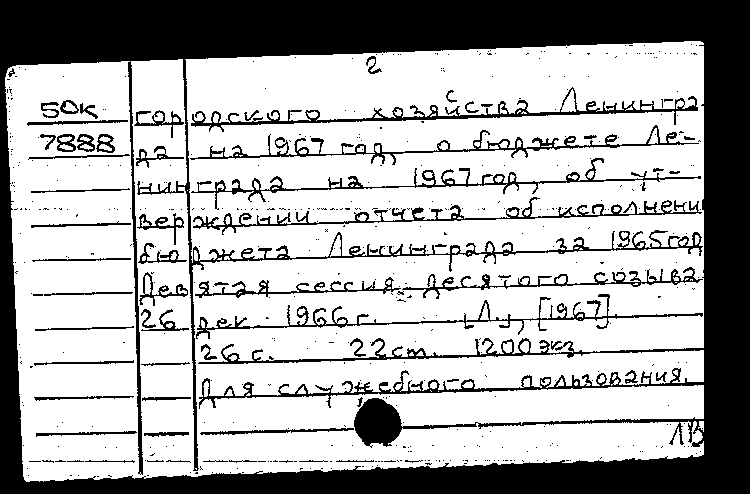 2
50к городского хозяйства Ленингра-
7888 да на 1967 год, о бюджете Ле-
нинграда на 1967 год, об ут-
верждении отчета об исполнени
бюджета Ленинграда за 1965 год
Девятая сессия десятого созыва
26 дек. 1966 г. [Л.], [1967].
26 с. 22 см. 1200 экз.
Для служебного пользования.